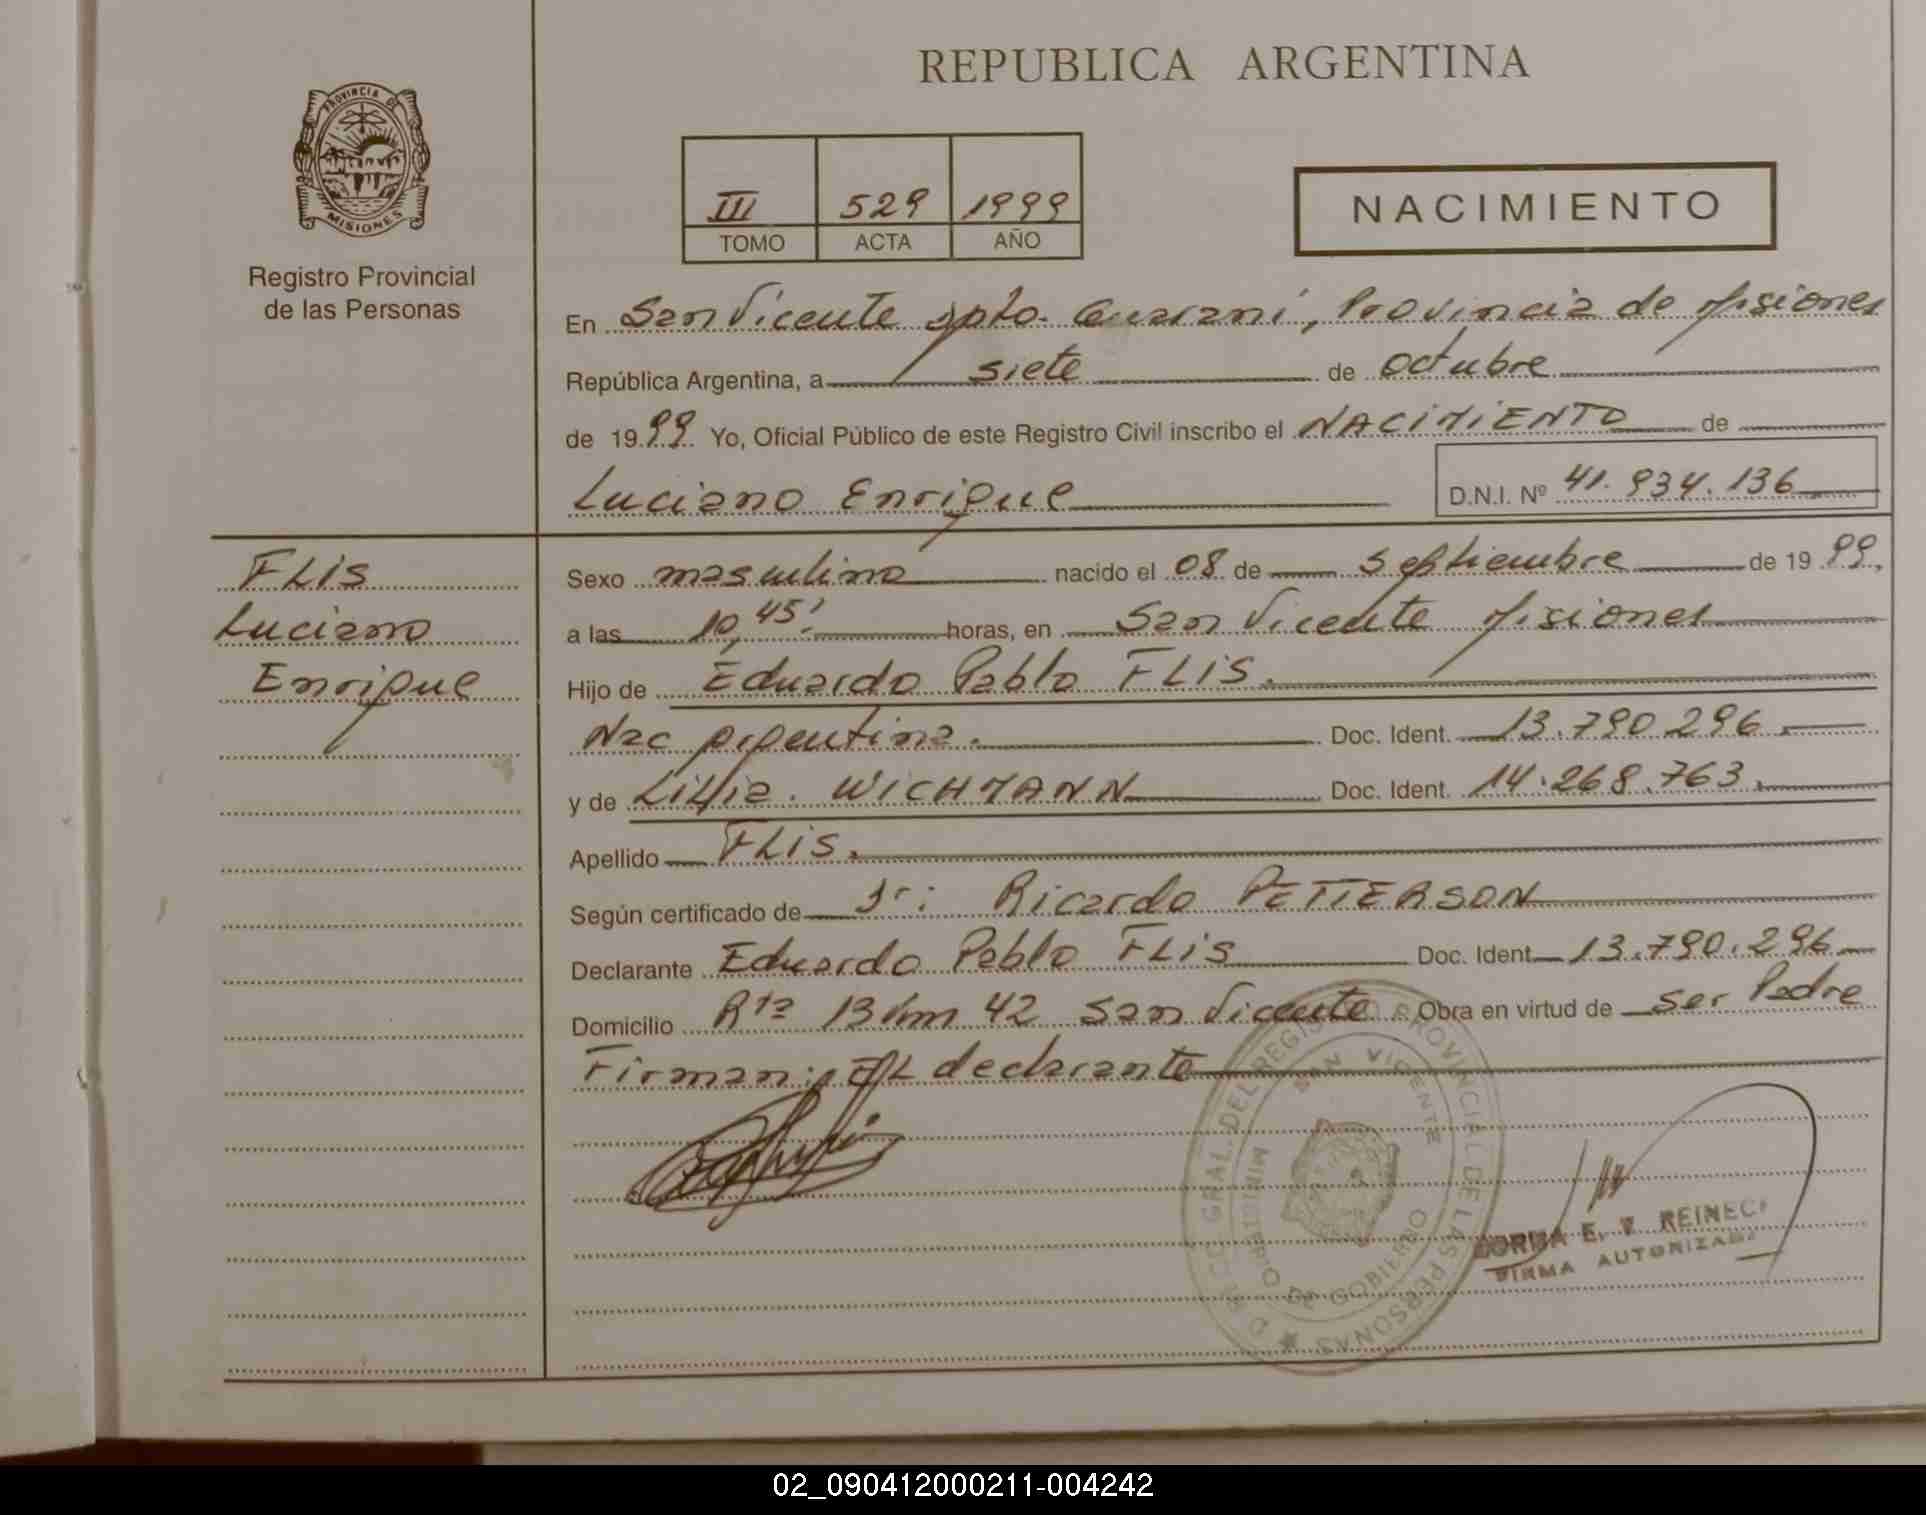 REPUBLICA ARGENTINA
PROVINCIA DE
MISIONES
Registro Provincial
de las Personas
III 529 1999
TOMO ACTA AÑO
NACIMIENTO
En San Vicente Dpto. Guarani, Provincia de Misiones
República Argentina, a siete de octubre
de 1999 Yo, Oficial Público de este Registro Civil inscribo el NACIMIENTO de
Luciano Enrique D.N.I. Nº 41.934.136
FLIS
Luciano
Enrique
Sexo masculino nacido el 08 de Septiembre de 1999.
a las 10,45' horas, en San Vicente Misiones
Hijo de Eduardo Pablo FLIS.
Nac Argentina. Doc. Ident. 13.790.296.
y de Lilia. WICHMANN Doc. Ident. 14.268.763.
Apellido FLIS.
Según certificado de Dr: Ricardo PETTERSON
Declarante Eduardo Pablo FLIS Doc. Ident 13.790.296
Domicilio Rta 13 km 42 San Vicente Obra en virtud de ser Padre
Firman: El declarante
DEL REGISTRO PROVINCIAL DE LAS PERSONAS
SAN VICENTE
MINISTERIO DE GOBIERNO
E. V. REINEC
FIRMA AUTORIZADA
02_090412000211-004242